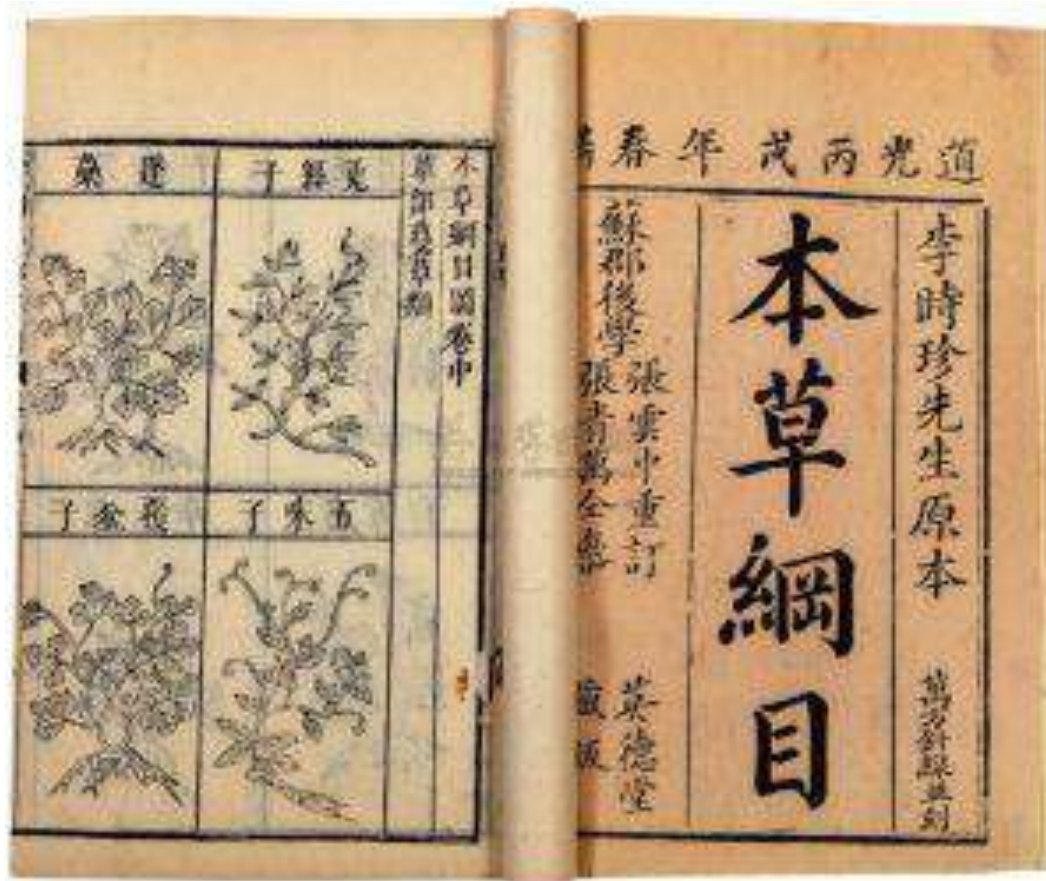 道光丙戌年春
李時珍先生原本
萬方鍼線並刻
本草綱目
蘇郡後學
張雲中重訂
張青萬仝參
英德堂
藏板
本草綱目圖卷中
草部蔓草類
菟絲子
蓬蘽
五味子
覆盆子